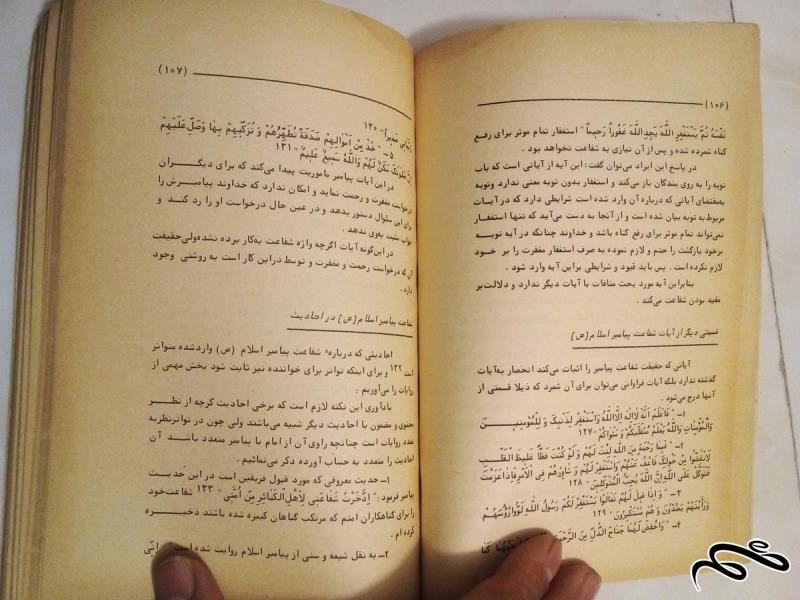 (۱۰۶)
نَفْسَهُ ثُمَّ یَسْتَغْفِرِ اللّٰهَ یَجِدِاللّٰهَ غَفُوراً رَحِیماً" استغفار تمام موثر برای رفع
گناه شمرده شده و پس از آن نیازی به شفاعت نخواهد بود .
در پاسخ این ایراد می‌توان گفت: این آیه از آیاتی است که باب
توبه را به روی بندگان باز می‌کند و استغفار بدون توبه معنی ندارد وتوبه
به‌مقتضای آیاتی که درباره آن وارد شده است شرایطی دارد که در آیات
مربوط به توبه بیان شده است و از آنجا به دست می‌آید که تنها استغفار
نمی‌تواند تمام موثر برای رفع گناه باشد و خداوند چنانکه در آیه توبه
برخود بازگشت را حتم و لازم نموده به صرف استغفار مغفرت را بر خود
لازم نکرده است . پس باید قیود و شرایطی براین آیه وارد شود .
بنابراین آیه مورد بحث منافات با آیات دیگر ندارد و دلالت‌بر
مقید بودن شفاعت می‌کند .
قسمتی دیگر از آیات شفاعت پیامبر اسلام [ص]
آیاتی که حقیقت شفاعت پیامبر را اثبات می‌کند انحصار به‌آیات
گذشته ندارد بلکه آیات فراوانی می‌توان برای آن شمرد که ذیلا قسمتی از
آنها درج می‌شود .
۱- " فَاعْلَمْ أَنَّهُ لاٰاِلٰهَ إِلَّااللّٰهُ وَاسْتَغْفِرْ لِذَنْبِکَ وَ لِلْمُومِنِیـنَ
وَالْمُؤْمِنٰاتِ وَاللّٰهُ یَعْلَمُ مُتَقَلَّبَکُمْ وَ مَثْواکُمْ" ۱۲۷
۲- " فَبِمٰا رَحْمَةٍ مِنَ اللّٰهِ لِنْتَ لَهُمْ وَ لَوْ کُنْتَ فَظّاً غَلِیظَ الْقَلْـبِ
لَانْفَضُّوا مِنْ حَوْلِکَ فَاعْفُ عَنْهُمْ وَاسْتَغْفِرْ لَهُمْ وَ شٰاوِرْهُمْ فِی الْاَمْرِ فَاِذٰا عَزَمْتَ
فَتَوَکَّلْ عَلَی اللّٰهِ اِنَّ اللّٰهَ یُحِبُّ الْمُتَوَکِّلِیـنَ" ۱۲۸
۳- " وَ اِذٰا قِیلَ لَهُمْ تَعٰالَوْا یَسْتَغْفِرْ لَکُمْ رَسُولُ اللّٰهِ لَوَّوْارُؤُسَهُمْ
وَرَأَیْتَهُمْ یَصُدُّونَ وَ هُمْ مُسْتَکْبِرُونَ" ۱۲۹
۴- "وَاخْفِضْ لَهُمٰا جَنٰاحَ الذُّلِّ مِنَ الرَّحْمَةِ
(۱۰۷)
صَغِیراً" ۱۳۰
۵- " خُذْ مِنْ اَمْوٰالِهِمْ صَدَقَةً تُطَهِّرُهُمْ وَ تُزَکِّیهِمْ بِهٰا وَصَلِّ عَلَیْهِمْ
إِنَّ صَلٰوتَکَ سَکَنٌ لَهُمْ وَاللّٰهُ سَمِیعٌ عَلِیمٌ" ۱۳۱
در این آیات پیامبر ماموریت پیدا می‌کند که برای دیگـران
درخواست مغفرت و رحمت نماید و امکان ندارد که خداوند پیامبرش را
برای این سئوال دستور بدهد و در عین حال درخواست او را رد کند و
جواب مثبت به‌وی ندهد .
در این‌گونه آیات اگرچه واژه شفاعت به‌کار برده نشده‌ولی‌حقیقت
آن که درخواست رحمت و مغفرت و توسط دراین کار است به روشنی وجود
دارد .
شفاعت پیامبر اسلام [ص] در احادیث
احادیثی که درباره شفاعت پیامبر اسلام (ص) واردشده متواتر
است ۱۳۲ و برای اینکه تواتر برای خواننده نیز ثابت شود بخش مهمی از
روایات را می‌آوریم :
یادآوری این نکته لازم است که برخی احادیث گرچه از نظـر
محتوی و مضمون با احادیث دیگر شبیه می‌باشند ولی چون در تواترنظربه
تعدد روایات است چنانچه راوی آن از امام یا پیامبر متعدد باشد آن
احادیث را متعدد به حساب آورده ذکر می‌نمائیم .
۱- حدیث معروفی که مورد قبول فریقین است در این حدیث
پیامبر فرمود: " اِدَّخَرْتُ شَفٰاعَتِی لِاَهْلِ الْکَبٰائِرِ مِنْ اُمَّتِی" ۱۳۳ شفاعت‌خود
را برای گناهکاران امتم که مرتکب گناهان کبیره شده باشند ذخیره
کرده ام .
۲- به نقل شیعه و سنی از پیامبر اسلام روایت شده است